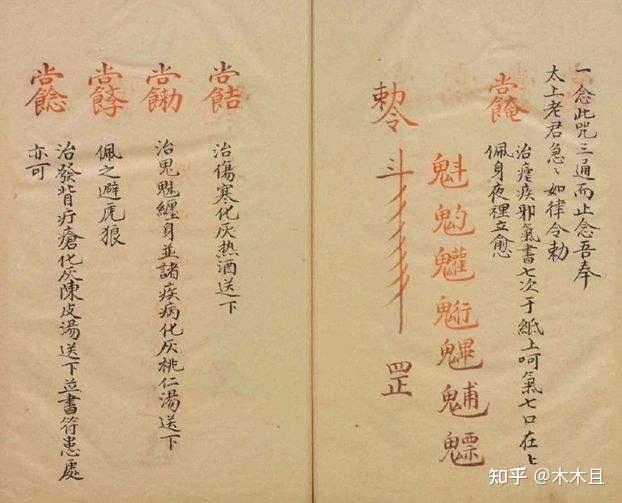 一念此咒三通而止念吾奉
太上老君急〻如律令勅
治瘧疾邪氣書七次于紙上呵氣七口在上
佩身夜裡立愈
魁𩲃𩵄䰢魓𩳐魒
勅令
斗
罡
治傷寒化灰热酒送下
治鬼魅纏身並諸疾病化灰桃仁湯送下
佩之避虎狼
治發背疔瘡化灰陳皮湯送下並書符患處
亦可
知乎 @木木且